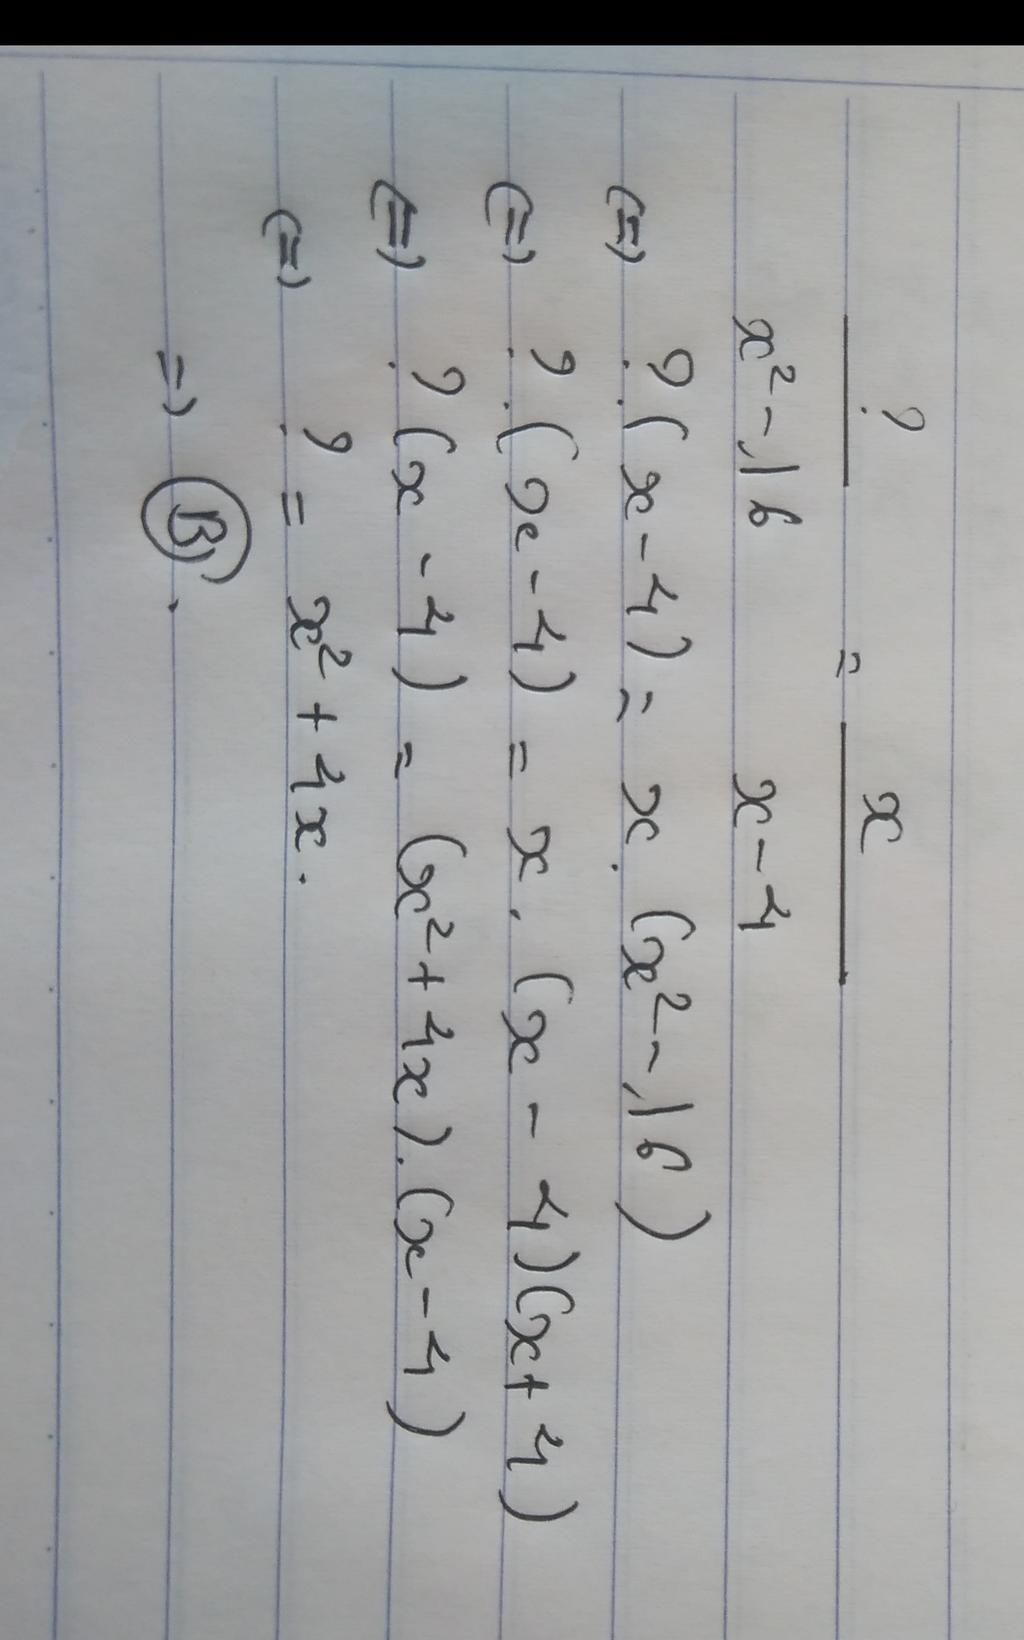 ? / x² - 16 = x / x - 4
(=) ? . (x - 4) = x . (x² - 16)
(=) ? . (x - 4) = x . (x - 4)(x + 4)
(=) ? (x - 4) = (x² + 4x) . (x - 4)
(=) ? = x² + 4x .
=) B .